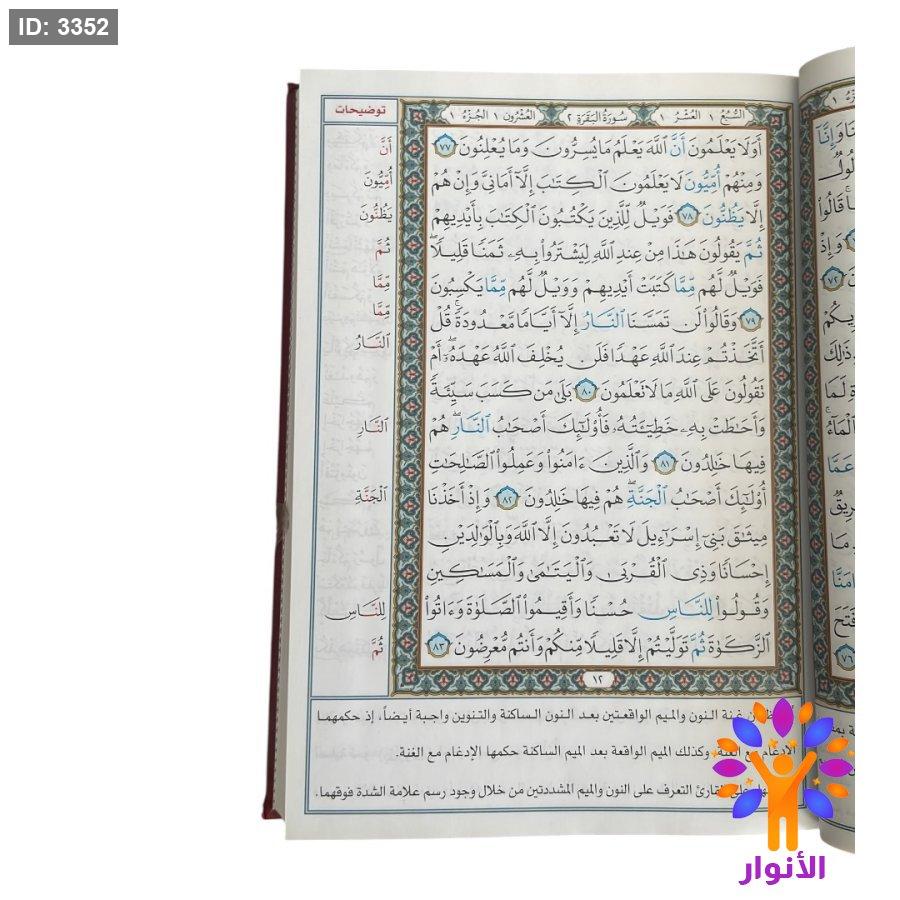 ID: 3352
السُّبُع ١ العُشْر ١ سُورَةُ البَقَرَةِ ٢ العُشْرُون ١ الجُزْءُ ١
توضيحات
أَوَلَا يَعْلَمُونَ أَنَّ ٱللَّهَ يَعْلَمُ مَا يُسِرُّونَ وَمَا يُعْلِنُونَ ٧٧
وَمِنْهُمْ أُمِّيُّونَ لَا يَعْلَمُونَ ٱلْكِتَٰبَ إِلَّآ أَمَانِىَّ وَإِنْ هُمْ
إِلَّا يَظُنُّونَ ٧٨ فَوَيْلٌ لِّلَّذِينَ يَكْتُبُونَ ٱلْكِتَٰبَ بِأَيْدِيهِمْ
ثُمَّ يَقُولُونَ هَٰذَا مِنْ عِندِ ٱللَّهِ لِيَشْتَرُوا۟ بِهِۦ ثَمَنًا قَلِيلًا ۖ
فَوَيْلٌ لَّهُم مِّمَّا كَتَبَتْ أَيْدِيهِمْ وَوَيْلٌ لَّهُم مِّمَّا يَكْسِبُونَ
٧٩ وَقَالُوا۟ لَن تَمَسَّنَا ٱلنَّارُ إِلَّآ أَيَّامًا مَّعْدُودَةً ۚ قُلْ
أَتَّخَذْتُمْ عِندَ ٱللَّهِ عَهْدًا فَلَن يُخْلِفَ ٱللَّهُ عَهْدَهُۥٓ ۖ أَمْ
تَقُولُونَ عَلَى ٱللَّهِ مَا لَا تَعْلَمُونَ ٨٠ بَلَىٰ مَن كَسَبَ سَيِّئَةً
وَأَحَٰطَتْ بِهِۦ خَطِيٓـَٔتُهُۥ فَأُو۟لَٰٓئِكَ أَصْحَٰبُ ٱلنَّارِ ۖ هُمْ
فِيهَا خَٰلِدُونَ ٨١ وَٱلَّذِينَ ءَامَنُوا۟ وَعَمِلُوا۟ ٱلصَّٰلِحَٰتِ
أُو۟لَٰٓئِكَ أَصْحَٰبُ ٱلْجَنَّةِ ۖ هُمْ فِيهَا خَٰلِدُونَ ٨٢ وَإِذْ أَخَذْنَا
مِيثَٰقَ بَنِىٓ إِسْرَٰٓءِيلَ لَا تَعْبُدُونَ إِلَّا ٱللَّهَ وَبِٱلْوَٰلِدَيْنِ
إِحْسَانًا وَذِى ٱلْقُرْبَىٰ وَٱلْيَتَٰمَىٰ وَٱلْمَسَٰكِينِ
وَقُولُوا۟ لِلنَّاسِ حُسْنًا وَأَقِيمُوا۟ ٱلصَّلَوٰةَ وَءَاتُوا۟
ٱلزَّكَوٰةَ ثُمَّ تَوَلَّيْتُمْ إِلَّا قَلِيلًا مِّنكُمْ وَأَنتُم مُّعْرِضُونَ ٨٣
١٢
أَنَّ
أُمِّيُّونَ
يَظُنُّونَ
ثُمَّ
مِّمَّا
مِّمَّا
ٱلنَّارُ
ٱلنَّارِ
ٱلْجَنَّةِ
لِلنَّاسِ
ثُمَّ
غنة النون والميم الواقعتين بعد النون الساكنة والتنوين واجبة أيضاً، إذ حكمهما
الإدغام مع الغنة، وكذلك الميم الواقعة بعد الميم الساكنة حكمها الإدغام مع الغنة.
القارئ التعرف على النون والميم المشددتين من خلال وجود رسم علامة الشدة فوقهما.
الأنوار